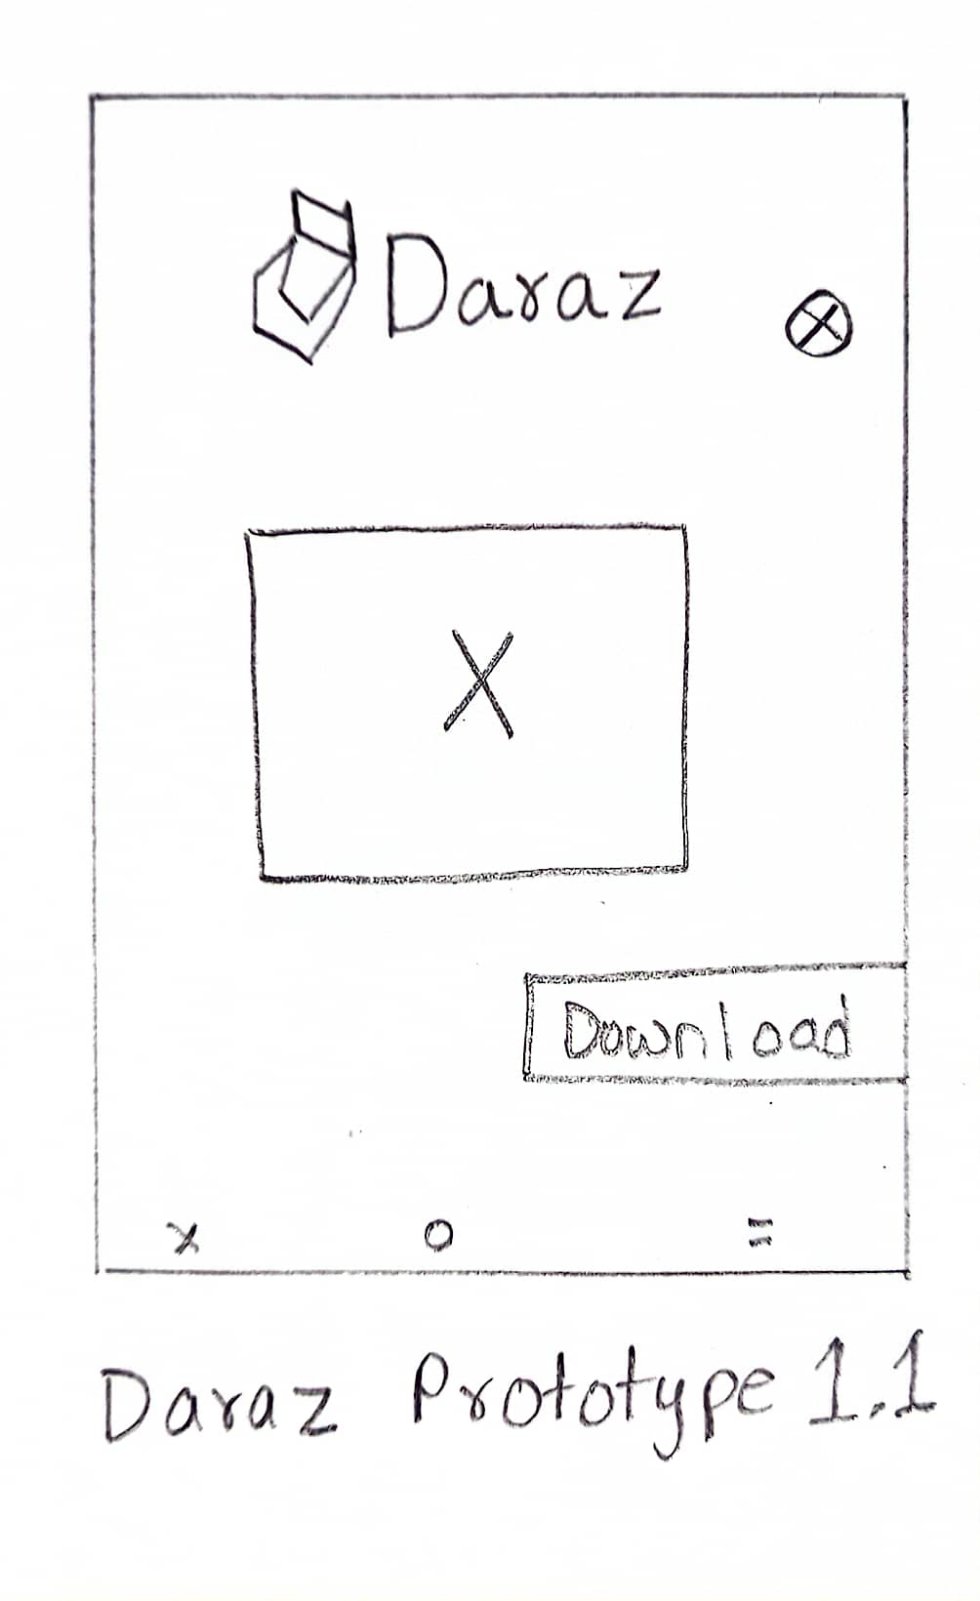 Daraz
X
X
Download
x O =
Daraz Prototype 1.1